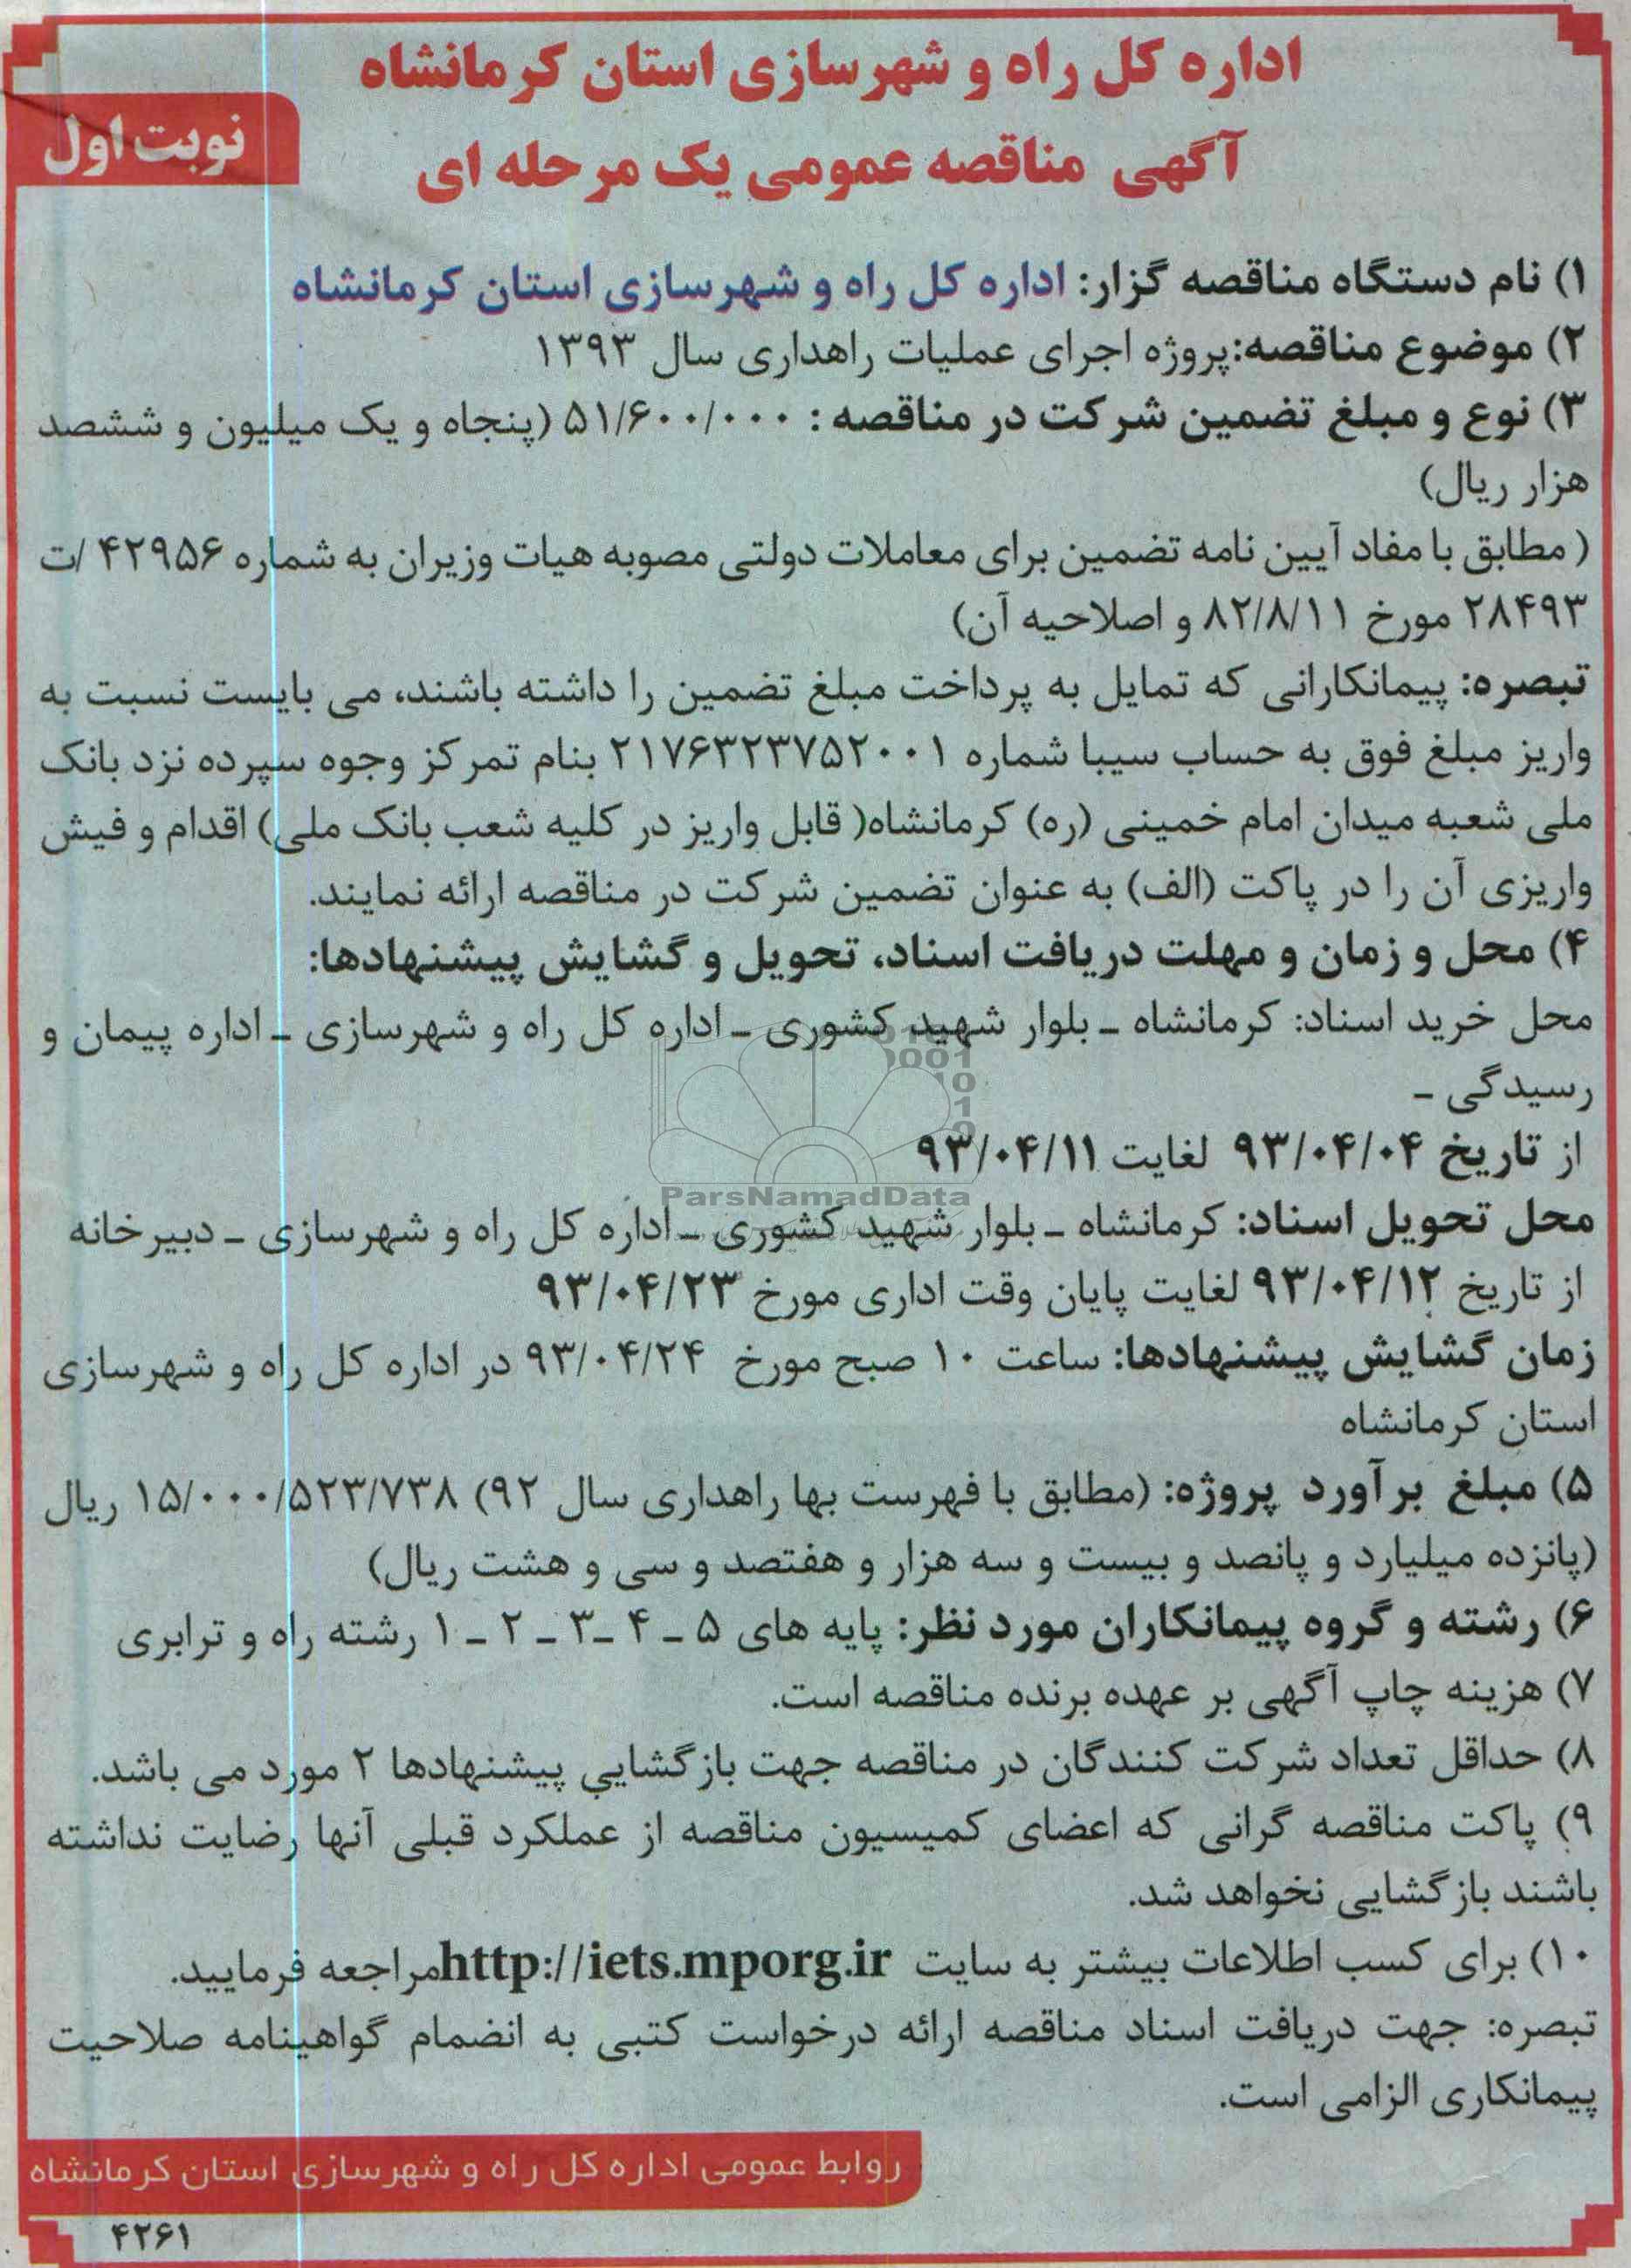 اداره کل راه و شهرسازی استان کرمانشاه
آگهی مناقصه عمومی یک مرحله ای
نوبت اول
۱) نام دستگاه مناقصه گزار: اداره کل راه و شهرسازی استان کرمانشاه
۲) موضوع مناقصه:پروژه اجرای عملیات راهداری سال ۱۳۹۳
۳) نوع و مبلغ تضمین شرکت در مناقصه : ۵۱/۶۰۰/۰۰۰ (پنجاه و یک میلیون و ششصد
هزار ریال)
( مطابق با مفاد آیین نامه تضمین برای معاملات دولتی مصوبه هیات وزیران به شماره ۴۲۹۵۶ /ت
۲۸۴۹۳ مورخ ۸۲/۸/۱۱ و اصلاحیه آن)
تبصره: پیمانکارانی که تمایل به پرداخت مبلغ تضمین را داشته باشند، می بایست نسبت به
واریز مبلغ فوق به حساب سیبا شماره ۲۱۷۶۳۲۳۷۵۲۰۰۱ بنام تمرکز وجوه سپرده نزد بانک
ملی شعبه میدان امام خمینی (ره) کرمانشاه( قابل واریز در کلیه شعب بانک ملی) اقدام و فیش
واریزی آن را در پاکت (الف) به عنوان تضمین شرکت در مناقصه ارائه نمایند.
۴) محل و زمان و مهلت دریافت اسناد، تحویل و گشایش پیشنهادها:
محل خرید اسناد: کرمانشاه ـ بلوار شهید کشوری ـ اداره کل راه و شهرسازی ـ اداره پیمان و
رسیدگی ـ
از تاریخ ۹۳/۰۴/۰۴ لغایت ۹۳/۰۴/۱۱
ParsNamadData
محل تحویل اسناد: کرمانشاه ـ بلوار شهید کشوری ـ اداره کل راه و شهرسازی ـ دبیرخانه
از تاریخ ۹۳/۰۴/۱۲ لغایت پایان وقت اداری مورخ ۹۳/۰۴/۲۳
زمان گشایش پیشنهادها: ساعت ۱۰ صبح مورخ ۹۳/۰۴/۲۴ در اداره کل راه و شهرسازی
استان کرمانشاه
۵) مبلغ برآورد پروژه: (مطابق با فهرست بها راهداری سال ۹۲) ۱۵/۰۰۰/۵۲۳/۷۳۸ ریال
(پانزده میلیارد و پانصد و بیست و سه هزار و هفتصد و سی و هشت ریال)
۶) رشته و گروه پیمانکاران مورد نظر: پایه های ۵ ـ ۴ ـ۳ ـ ۲ ـ ۱ رشته راه و ترابری
۷) هزینه چاپ آگهی بر عهده برنده مناقصه است.
۸) حداقل تعداد شرکت کنندگان در مناقصه جهت بازگشایی پیشنهادها ۲ مورد می باشد.
۹) پاکت مناقصه گرانی که اعضای کمیسیون مناقصه از عملکرد قبلی آنها رضایت نداشته
باشند بازگشایی نخواهد شد.
۱۰) برای کسب اطلاعات بیشتر به سایت http://iets.mporg.irمراجعه فرمایید.
تبصره: جهت دریافت اسناد مناقصه ارائه درخواست کتبی به انضمام گواهینامه صلاحیت
پیمانکاری الزامی است.
روابط عمومی اداره کل راه و شهرسازی استان کرمانشاه
۴۲۶۱